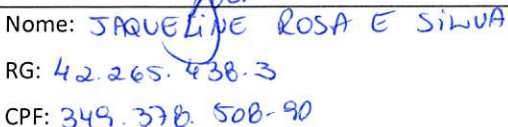 Nome: JAQUELINE ROSA E SILVA
RG: 42.265.438.3
CPF: 349.378.508-90